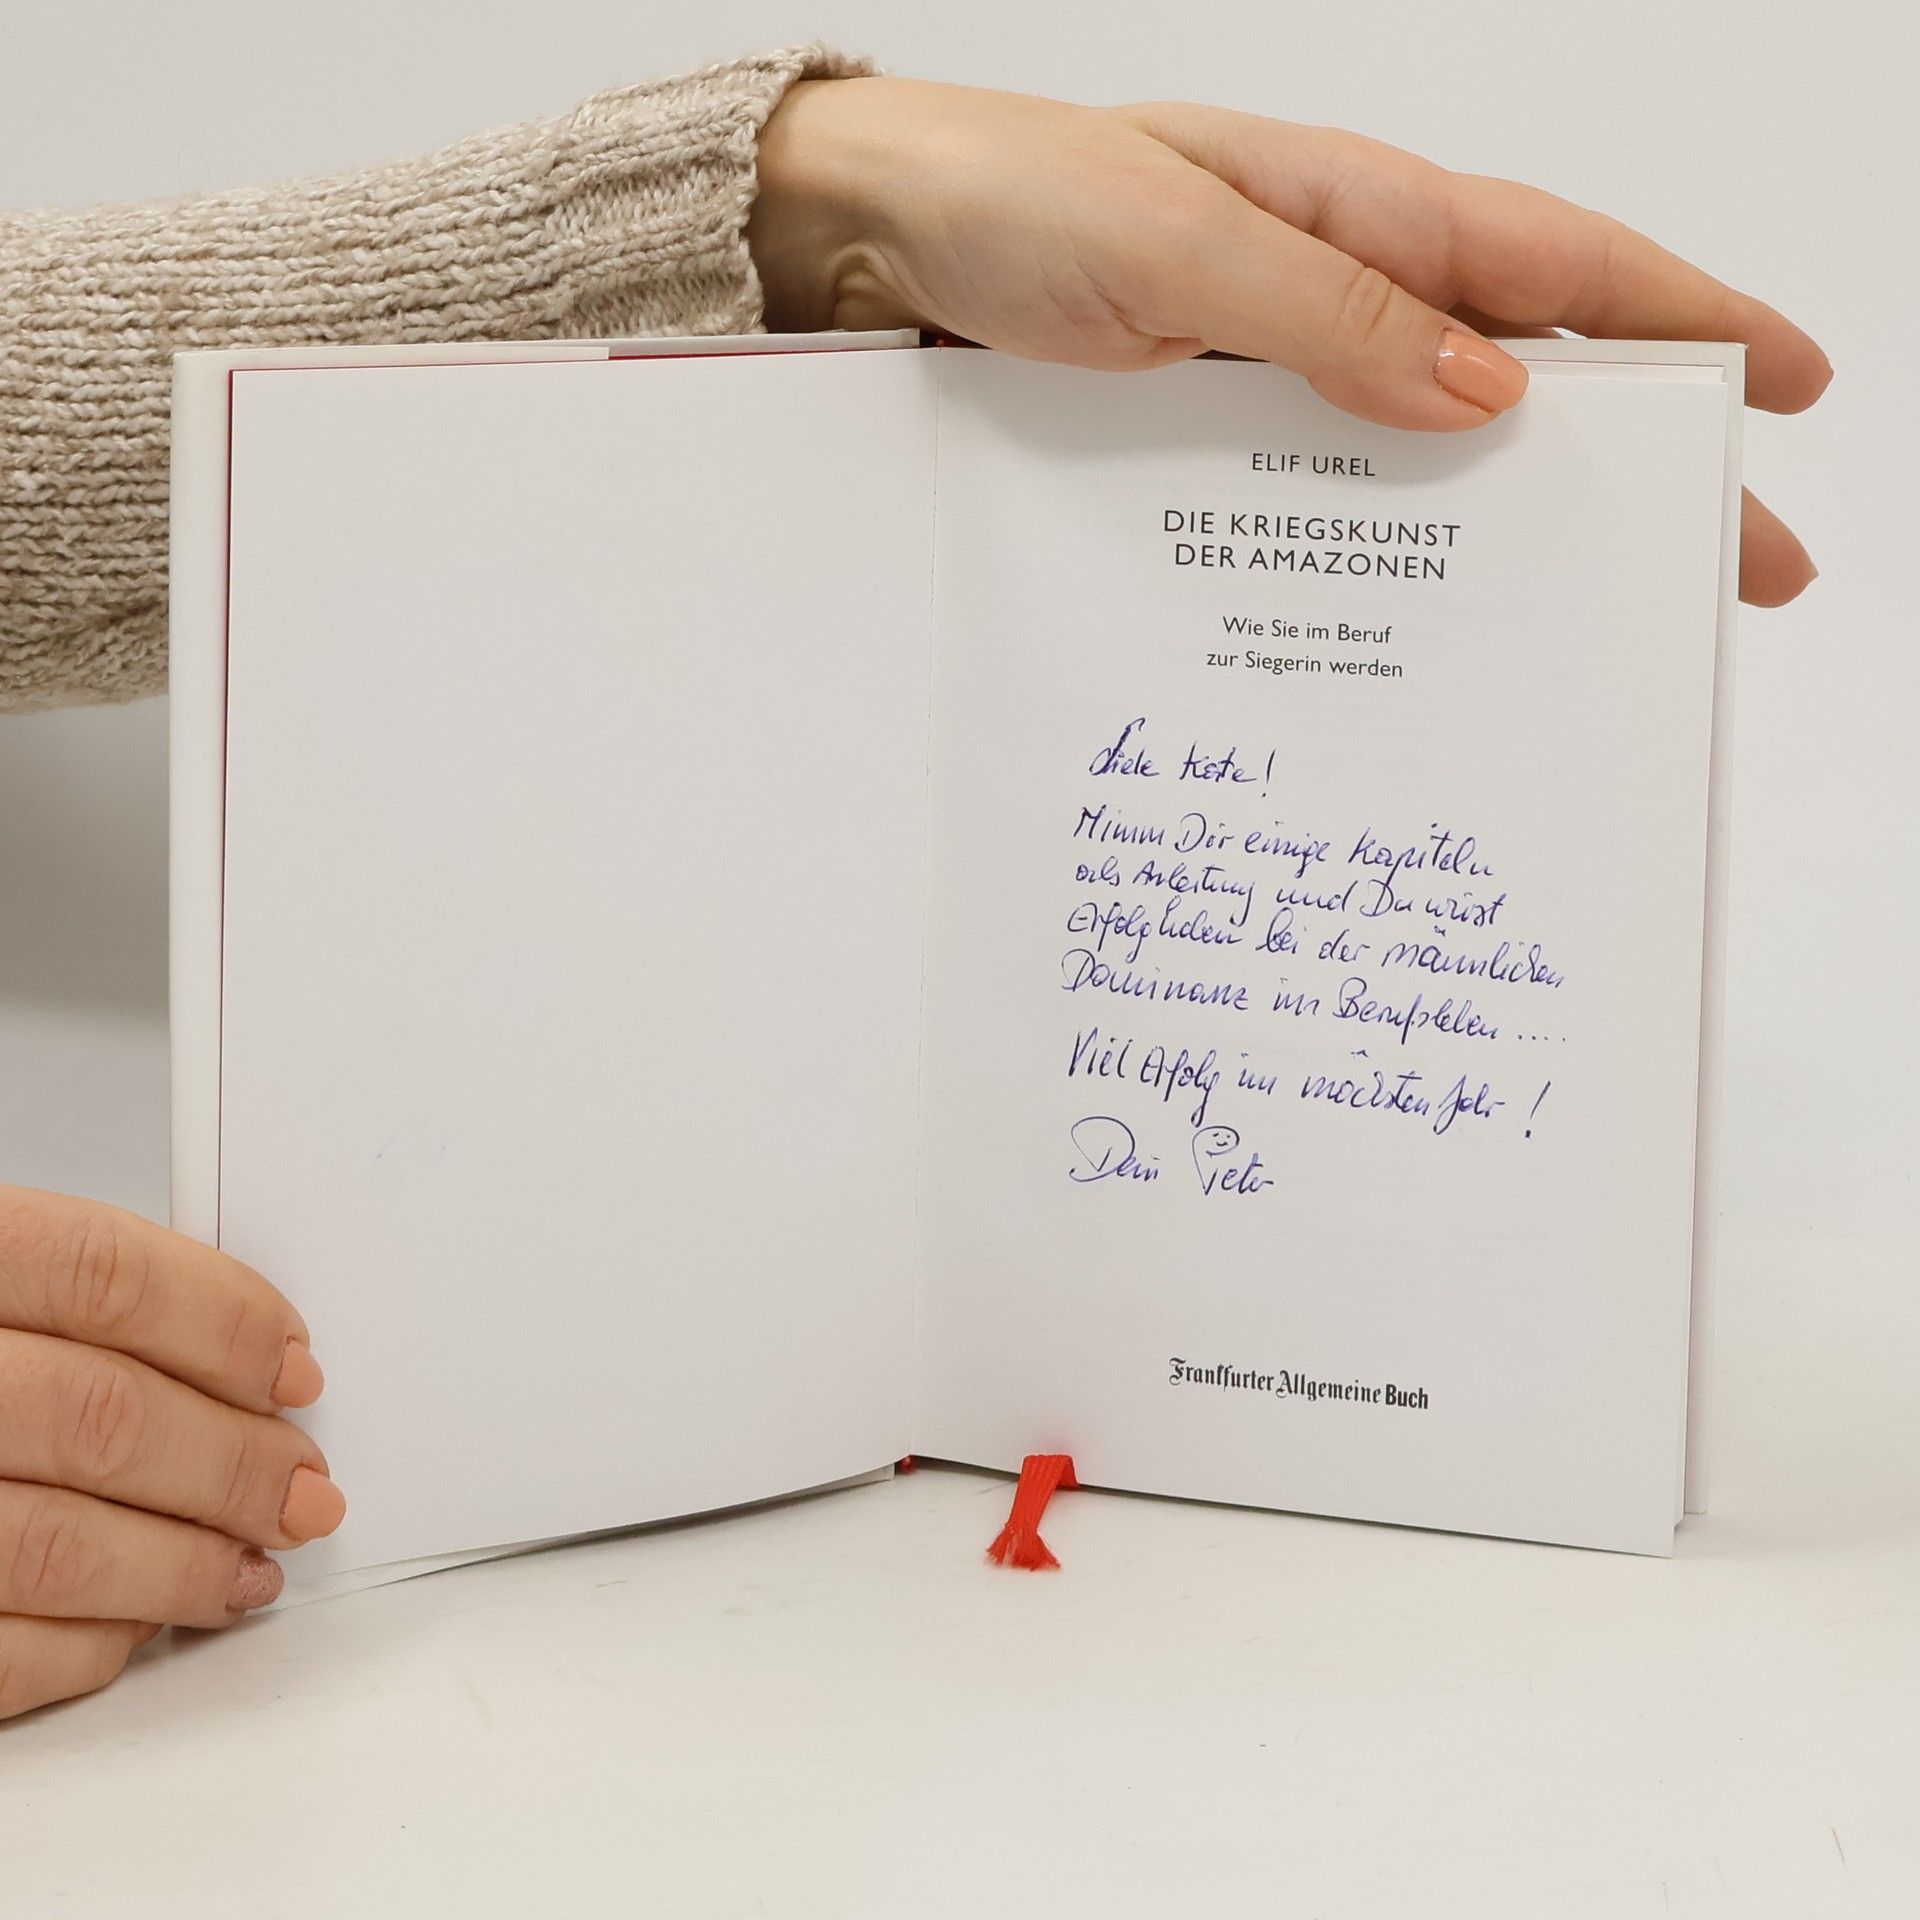 ELIF UREL
DIE KRIEGSKUNST
DER AMAZONEN
Wie Sie im Beruf
zur Siegerin werden
Liebe Kate!
Nimm Dir einige Kapiteln
als Anleitung und Du wirst
Erfolg haben bei der männlichen
Dominanz im Berufsleben ....
Viel Erfolg im nächsten Jahr!
Dein Peter
Frankfurter Allgemeine Buch